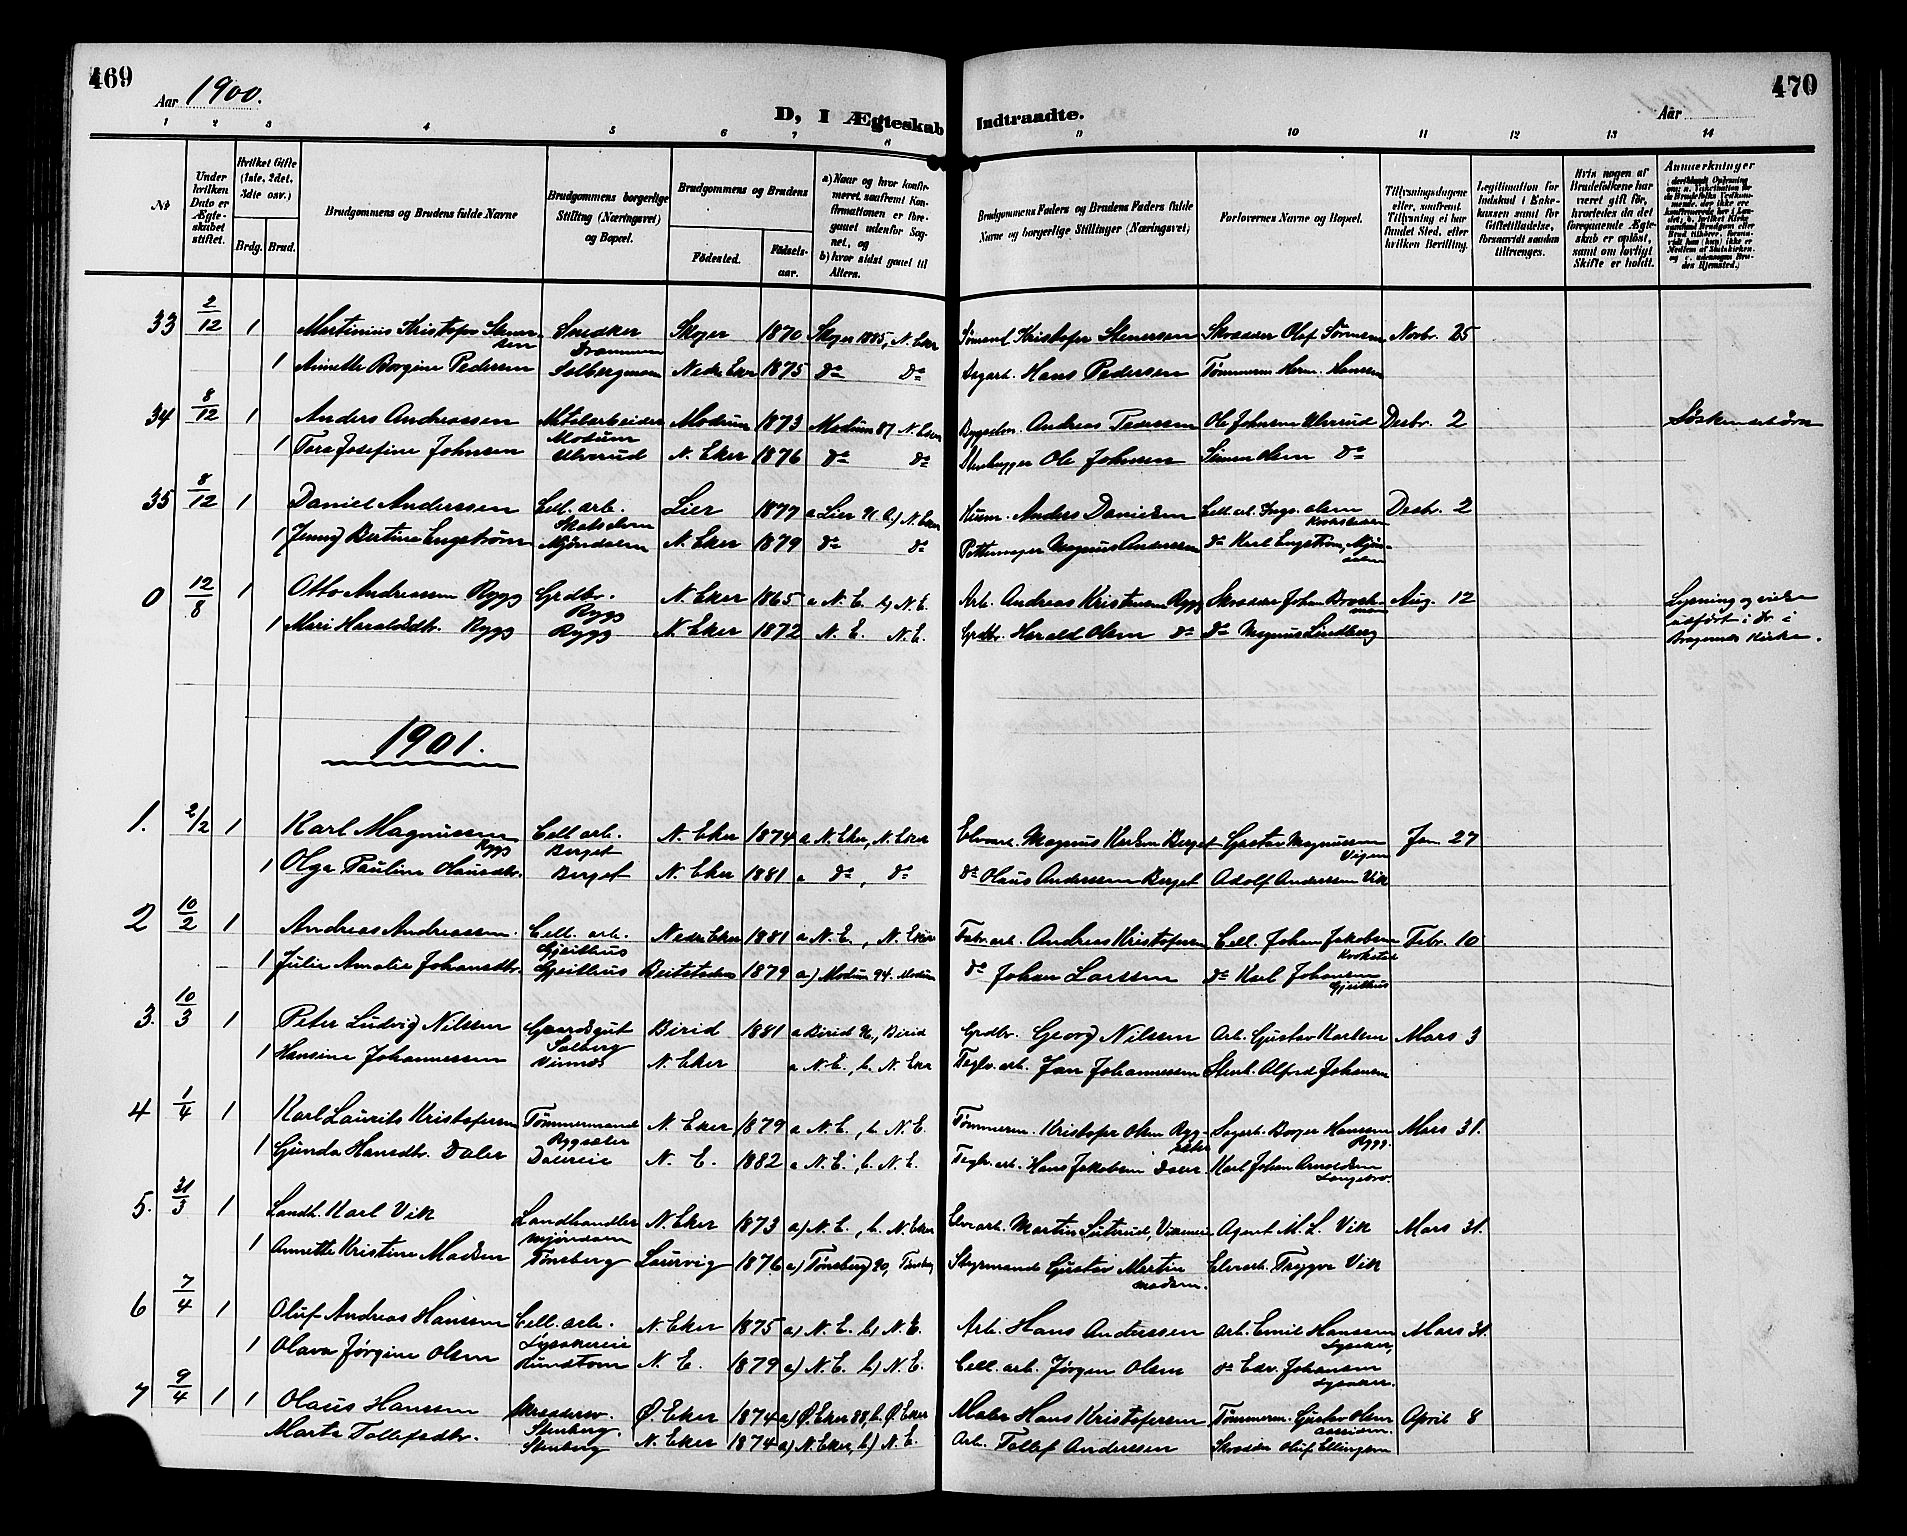 469
Aar 1900.
D, I Ægteskab Indtraadte.
Aar
470
1 2 3 4 5 6 7 8 9 10 11 12 13 14
No
Under hvilken Dato er Ægteskabet stiftet.
Hvilket Gifte (1ste, 2det, 3die osv.)
Brdg. Brud.
Brudgommens og Brudens fulde Navne
Brudgommens borgerlige Stilling (Næringsvei) og Bopæl.
Brudgommens og Brudens
Fødested.
Fødselsaar.
a) Naar og hvor konfirmeret, samt om Konfirmationen er foregaaet udenfor Sognet, og
b) hvor sidst gaaet til Alters.
Brudgommens Faders og Brudens Faders fulde Navne og borgerlige Stillinger (Næringsvei)
Forlovernes Navne og Bopæl.
Tillysningsdagene eller, saafremt Tillysning ei har fundet Sted, efter hvilken Bevilling.
Legitimation for Indskud i Enkekassen samt for Giftetilladelse, forsaavidt saadan tiltrænges.
Hvis nogen af Brudefolkene har været gift før, hvorledes da det foregaaende Ægteskab er opløst, samt om lovligt Skifte er holdt.
Anmærkninger
33 2/12 1 Martinius Kristofer Stenersen Snedker Skoger 1870 Skoger 1885, N. Eker Kristofer Stenersen Skrædder Olaf Sørensen Novbr. 25
Drammen
1 Annette Borgine Pedersen Solbergmoen Nedre Eker 1875 do do Hans Pedersen Tømmerm. Herm. Hansen
34 8/12 1 Anders Andreassen Modum 1873 Modum 87 N. Eker Andreas Pedersen Ole Johnsen Ulverud Desbr. 2 Søskendebørn
Modum
1 Tora Josefine Johnsen Ulverud N. Eker 1876 do do Ole Johnsen Simen Olsen do
35 8/12 1 Daniel Anderssen Cell. arb. Lier 1877 a Lier 91 b) N. Eker Husm. Anders Danielsen Cell. arb. Olsen Desbr. 2
1 Jenny Bertine Engstrøm Mjøndalen N. Eker 1879 do do Pottemager Magnus Anderssen do Karl Engstrøm, Mjøndalen
0 12/8 1 Otto Andreassen Rygg Grdbr. N. Eker 1865 a N. E. b) N. E. Arb. Andreas Kristensen Rygg Skrædder Johan Aug. 12 Lysning og vielse
Rygg
1 Mari Haraldsdtr. Rygg Rygg N. Eker 1872 N. E. N. E. Grdbr. Harald Olsen do do Magnus Lindberg
udført i Dr i
Bragernes Kirke.
1901.
1. 2/2 1 Karl Magnussen Cell. arb. N. Eker 1874 a N. Eker, N. Eker Magnus Karlsen Berget Gustav Magnussen Jan. 27
Rygg Berget Vigen
1 Olga Pauline Olausdtr. Berget N. Eker 1881 a do, do do Olaus Anderssen Berget Adolf Anderssen Vik
2 10/2 1 Andreas Andreassen Cell. arb. Nedre Eker 1881 a N. E., N. Eker Fabr. arb. Andreas Kristofersen Cell. Johan Jakobsen Febr. 10
Gjeithus Krokstad
1 Julie Amalie Johansdtr. Gjeithus Beitstaden 1879 a) Modum 94. Modum do Johan Larssen do Karl Johansen
Gjeithus
3. 10/3 1 Peter Ludvig Nilssen Gaardsgut Birid 1881 a Birid 96, Birid Grdbr. Georg Nilssen Arb. Gustav Karlsen Mars 3
Solberg
1 Hansine Johannessen N. Eker a N. E., b. N. Eker Teglv. arb. Jan Johannessen Stenh. Alfred Johansen
4 1/4 1 Karl Laurits Kristofersen Tømmermand N. Eker 1879 a N. E., b. N. E. Tømmerm. Kristofer Olsen Rygsæter Sagarb. Borger Hanssen Mars 31.
Rygsæter Rygg.
1 Gunda Hansdtr. Daler Dalereie N. E. 1882 a N. E., b. N. E. Teglv. arb. Hans Jakobsen Daler. Karl Johan Arnoldsen
Langebro.
5. 31/3 1 Landh. Karl Vik Landhandler N. Eker 1873 a) N. E., b. N. Eker Elvearb. Martin Suterud, Vikeneie Agent M. L. Vik Mars 31.
Mjøndalen
1 Annette Kristine Madsen Tønsberg Laurvig 1876 a) Tønsberg 90, Tønsberg Styrmand Gustav Martin Madsen. Elvearb. Trygve Vik
6 7/4 1 Oluf Andreas Hanssen Cell. arb. N. Eker 1875 a) N. E. b) N. E. Arb. Hans Anderssen arb. Emil Hanssen Mars 31.
Lysakereie Lysaker,
1 Olava Jørgine Olsen N. E. 1879 a) N. E. b) N. E. Cell. arb. Jørgen Olsen do Edv. Johansen
Lysaker.
7 9/4 1 1 Olaus Hanssen Skræddersv. Ø. Eker 1874 a) Ø. Eker 88, b. Ø. Eker Maler Hans Kristofersen Tømmerm. Gustav Olsen April 8
Stenberg.
Marte Tollefsdtr. Stenberg N. Eker 1874 a) N. Eker, b) N. E. Arb. Tollef Anderssen Skrædder Oluf Ellingsen